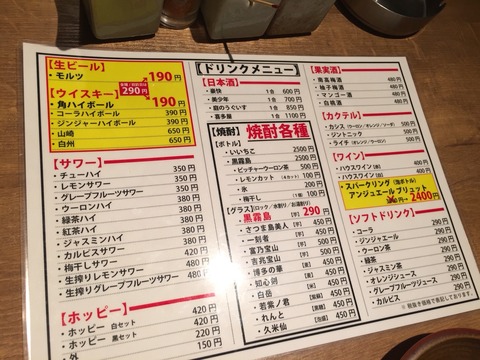 【生ビール】
・モルツ 190円
290円
【ウイスキー】
・角ハイボール 190円
・コーラハイボール 390円
・ジンジャーハイボール 390円
・山崎 650円
・白州 650円
【サワー】
・チューハイ 350円
・レモンサワー 350円
・グレープフルーツサワー 350円
・ウーロンハイ 380円
・緑茶ハイ 380円
・紅茶ハイ 380円
・ジャスミンハイ 380円
・カルピスサワー 380円
・梅干しサワー 420円
・生搾りレモンサワー 480円
・生搾りグレープフルーツサワー 480円
【ホッピー】
・ホッピー 白セット 420円
・ホッピー 黒セット 420円
・外 150円
【ドリンクメニュー】
【日本酒】
・豪快 1合 600円
・美少年 1合 700円
・庭のうぐいす 1合 850円
・喜多屋 1合 1100円
【焼酎】 焼酎各種
【ボトル】
・いいちこ 2500円
・黒霧島 2500円
・ピッチャーウーロン茶 500円
・レモンカット 【キープ】 100円
・氷 200円
・梅干し 【1個】 100円
【グラス】(ロック/水割り/お湯割り)
・黒霧島 【芋】 290円
・さつま島美人 【芋】 450円
・一刻者 【芋】 450円
・富乃宝山 【芋】 500円
・吉兆宝山 【芋】 500円
・博多の華 【麦】 450円
・知心剣 【麦】 450円
・白岳 【米】 450円
・若紫ノ君 450円
・れんと 【黒糖】 450円
・久米仙 【泡盛】 450円
【果実酒】
・南高梅酒 480円
・柚子梅酒 480円
・マンゴー酒 480円
・白桃酒 480円
【カクテル】
・カシス (ウーロン/オレンジ/ソーダ) 480円
・ジントニック 480円
・ライチ (オレンジ/ウーロン) 480円
【ワイン】
・ハウスワイン (赤) 480円
・ハウスワイン (白) 480円
・スパークリング (泡ボトル)
アンジュエール ブリュット 2400円
【ソフトドリンク】
・コーラ 290円
・ジンジャエール 290円
・ウーロン茶 290円
・緑茶 290円
・ジャスミン茶 290円
・オレンジジュース 290円
・グレープフルーツジュース 290円
・カルピス 290円
※ 税抜き価格で表記しております。